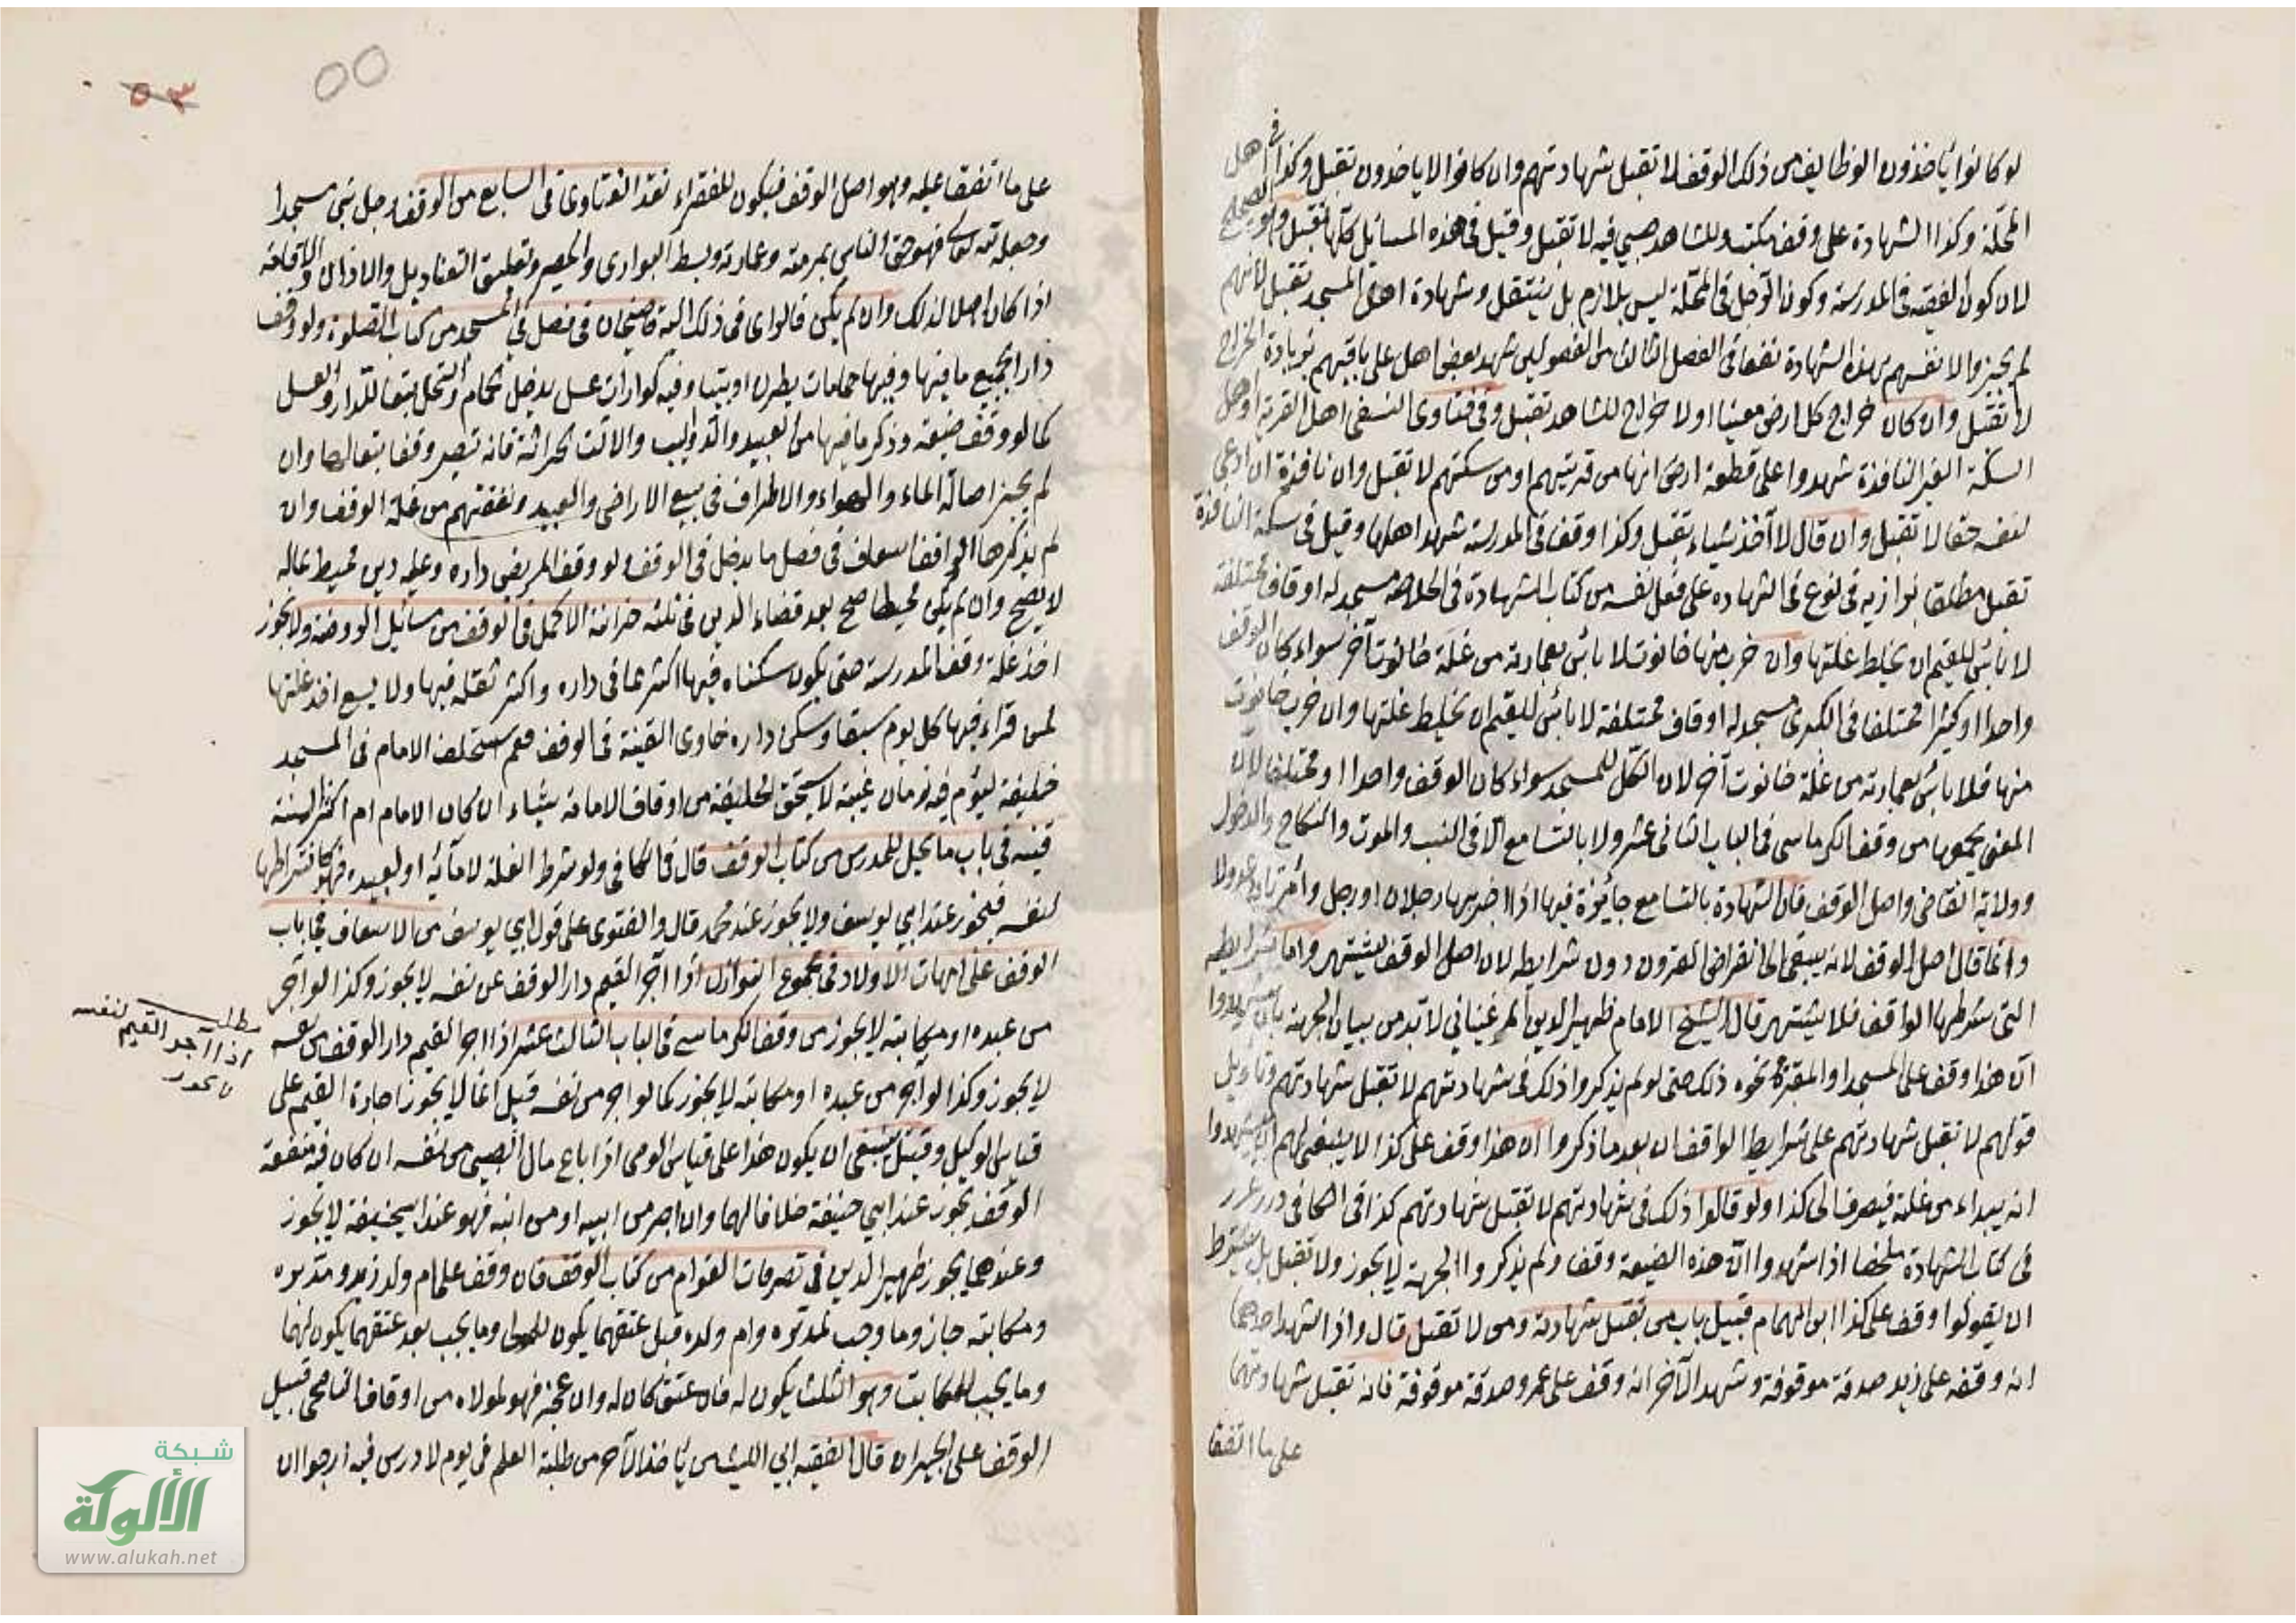 لو كانوا يأخذون الوظايف من ذلك الوقف لا تقبل شهادتهم وان كانوا لا ياخذون تقبل وكذا في اهل
المحلة وكذا الشهادة على وقف مكتب وللشاهد صبي فيه لا تقبل وقيل في هذه المسائل كلها تقبل وهو الصحيح
لان كون الفقيه في المدرسة وكون الرجل في المحلة ليس بلازم بل ينتقل وشهادة اهل المسجد تقبل لانهم
لم يجيزوا لانفسهم بهذه الشهادة نفعا في الفصل الثالث من الفصولين شهد بعض اهل على باقيهم بزيادة الخراج
لا تقبل وان كان خراج كل ارض معينا او لا خراج للشاهد تقبل وفي فتاوى النسفي اهل القرية او اهل
السكة الغير النافذة شهدوا على قطعة ارض انها من قريتهم او من سكتهم لا تقبل وان نافذة ان ادعى
لنفسه حقا لا تقبل وان قال لا آخذ شياء تقبل وكذا وقف في المدرسة شهد اهلها وقيل في سكة النافذة
تقبل مطلقا بزازيه في نوع في الشهاده على فعل نفسه من كتاب الشهادة في الخلاصه مسجد له اوقاف مختلفة
لا بائس للقيم ان يخلط غلتها وان خرب منها خانوت لا بائس بعمارته من غلة خانوت آخر سواء كان الوقف
واحدا او كثيرا مختلفا في الكبرى مسجد له اوقاف مختلفة لا بائس للقيم ان يخلط غلتها وان خرب خانوت
منها فلا بائس بعمارته من غلة خانوت آخر لان الكل للمسجد سواء كان الوقف واحدا او مختلفا لان
المعنى يجمعها من وقف الكرماسى في الباب الثانى عشر ولا بالتسامع الا في النسب والموت والنكاح والدخول
وولاية القاضى واصل الوقف فان الشهادة بالتسامع جائزة فيها اذا اخبر بها رجلان او رجل وامرتان عدولا
وانما قال اصل الوقف لانه يبقى الى انقراض القرون دون شرايطه لان اصل الوقف يشتهر واما شرايطه
التى شرطها الواقف فلا يشتهر قال الشيخ الامام ظهير الدين المرغيناني لا بد من بيان الجهة بان يشهدوا
انّ هذا وقف على المسجد او المقبرة ونحوه ذلك حتى لو لم يذكروا ذلك في شهادتهم لا تقبل شهادتهم وتاويل
قولهم لا تقبل شهادتهم على شرايط الواقف ان بعد ما ذكروا ان هذا وقف على كذا لا ينبغى لهم ان يشهدوا
انه يبداء من غلته فيصرف الى كذا ولو قالوا ذلك في شهادتهم لا تقبل شهادتهم كذا في الكافى درر غرر
في كتاب الشهادة ملخصا اذا شهدوا انّ هذه الضيعة وقف ولم يذكروا الجهة لا يجوز ولا تقبل بل يشترط
ان يقولوا وقف على كذا ابن الهمام قبيل باب من تقبل شهادته ومن لا تقبل قال واذا شهد احدهما
انه وقفه على زيد صدقة موقوفة وشهد الآخر انه وقف على عمرو صدقة موقوفة فانه تقبل شهادتهما
على ما اتفقا
٥٣
٥٥
على ما اتفقا عليه وهو اصل الوقف فيكون للفقراء نقد الفتاوى في السابع من الوقف رجل بنى مسجدا
وجعله لله تعالى فهو حق الناس بمرمته وعمارته وبسط البوارى والحصير وتعليق القناديل والاذان والاقامة
اذا كان اهلا لذلك وان لم يكن فالراى في ذلك اليه قاضيخان في فصل في المسجد من كتاب الصلوة ولو وقف
دارا بجميع ما فيها وفيها حمامات يطرن او بيتا وفيه كوارات عسل يدخل الحمام والنحل تبعا للدار والعسل
كما لو وقف ضيعة وذكر ما فيها من العبيد والدواليب والالات الحراثة فانه تصير وقفا تبعا لها وان
لم يجز اصالة الماء والهواء والاطراف في بيع الاراضى والعبيد ونفقتهم من غلة الوقف وان
لم يذكرها الواقف اسعاف في فصل ما يدخل في الوقف ولو وقف المريض داره وعليه دين محيط بماله
لا يصح وان لم يكن محيطا صح بعد قضاء الدين في ثلثه خزانة الاكمل في الوقف من مسائل الروضة ولا يجوز
اخذ غلة وقف المدرسة حتى يكون سكناه فيها اكثر مما في داره واكثر ثقله فيها ولا يسع اخذ غلتها
لمن قراء فيها كل يوم سبقا وسكن داره حاوى القنية في الوقف فعم استخلف الامام في المسجد
خليفة ليؤم فيه زمان غيبته لا يستحق الخليفة من اوقاف الامامة شياء ان كان الامام ام اكثر السنة
قنيه في باب ما يحل للمدرس من كتاب الوقف قال في الكافى ولو شرط الغلة لامائه او لعبيده فهو كاشتراطها
لنفسه فيجوز عند ابي يوسف ولا يجوز عند محمد قال والفتوى على قول ابي يوسف من الاسعاف في باب
الوقف على امهات الاولاد في مجموع النوازل اذا آجر القيم دار الوقف عن نفسه لا يجوز وكذا لو آجر
من عبده او مكاتبه لا يجوز من وقف الكرماسى في الباب الثالث عشر اذا اجر القيم دار الوقف من نفسه
مطلب اذا آجر القيم لنفسه
لا يجوز
لا يجوز وكذا لو آجر من عبده او مكاتبه لا يجوز كما لو اجر من نفسه قيل انما لا يجوز اجارة القيم على
قياس الوكيل وقيل ينبغى ان يكون هذا على قياس الوصى اذا باع مال الصبى من نفسه ان كان فيه منفعة
الوقف يجوز عند ابي حنيفة خلافا لهما وان اجر من ابيه او من ابنه فهو عند ابيحنيفة لا يجوز
وعندهما يجوز ظهير الدين في تصرفات القوام من كتاب الوقف فان وقف على ام ولد زيد ومدبره
ومكاتبه جاز وما وجب لمدبره وام ولده قبل عتقهما يكون للمولى وما يجب بعد عتقهما يكون لهما
وما يجب للمكاتب وهو الثلث يكون له فان عتق كان له وان عجز فهو لمولاه من اوقاف الناصحى قبيل
الوقف على الجيران قال الفقيه ابي الليث من يأخذ الآجر من طلبة العلم في يوم لا درس فيه ارجوا ان
شبكة
الألوكة
www.alukah.net